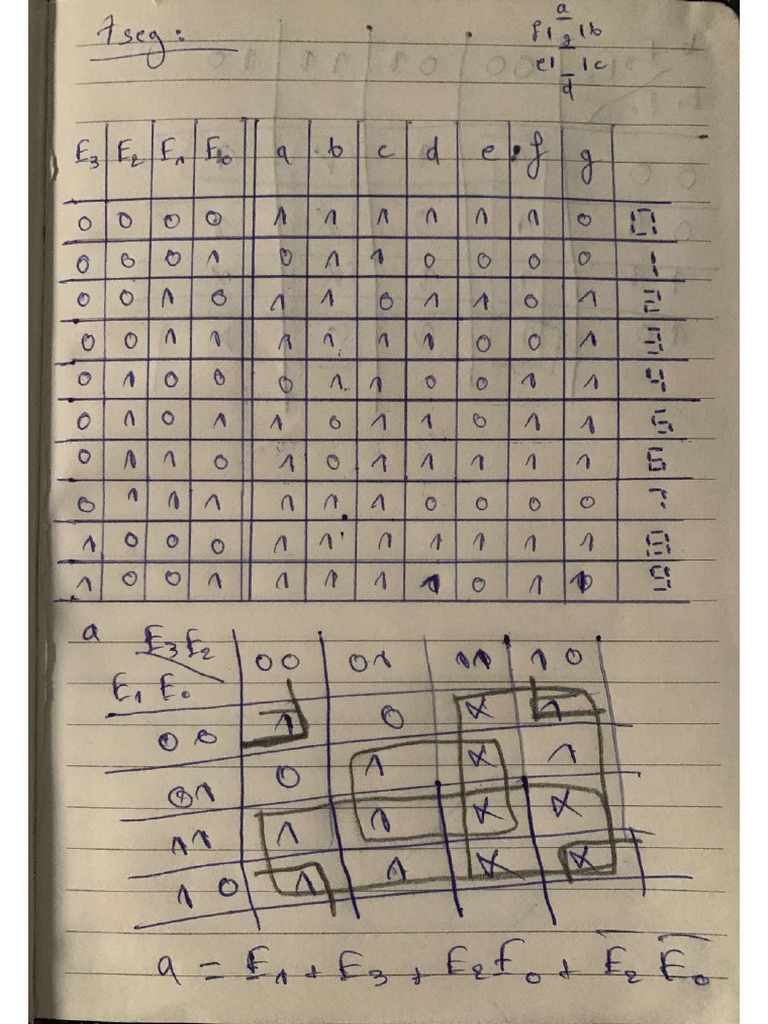 7seg:
a
f g b
e c
d
E₃ E₂ E₁ E₀ a b c d e f g
0 0 0 0 1 1 1 1 1 1 0 0
0 0 0 1 0 1 1 0 0 0 0 1
0 0 1 0 1 1 0 1 1 0 1 2
0 0 1 1 1 1 1 1 0 0 1 3
0 1 0 0 0 1 1 0 0 1 1 4
0 1 0 1 1 0 1 1 0 1 1 5
0 1 1 0 1 0 1 1 1 1 1 6
0 1 1 1 1 1 1 0 0 0 0 7
1 0 0 0 1 1 1 1 1 1 1 8
1 0 0 1 1 1 1 1 0 1 1 9
a E₃E₂ 00 01 11 10
E₁ E₀
00 1 0 X 1
01 0 1 X 1
11 1 1 X X
10 1 1 X X
a = E₁ + E₃ + E₂E₀ + E̅₂ E̅₀